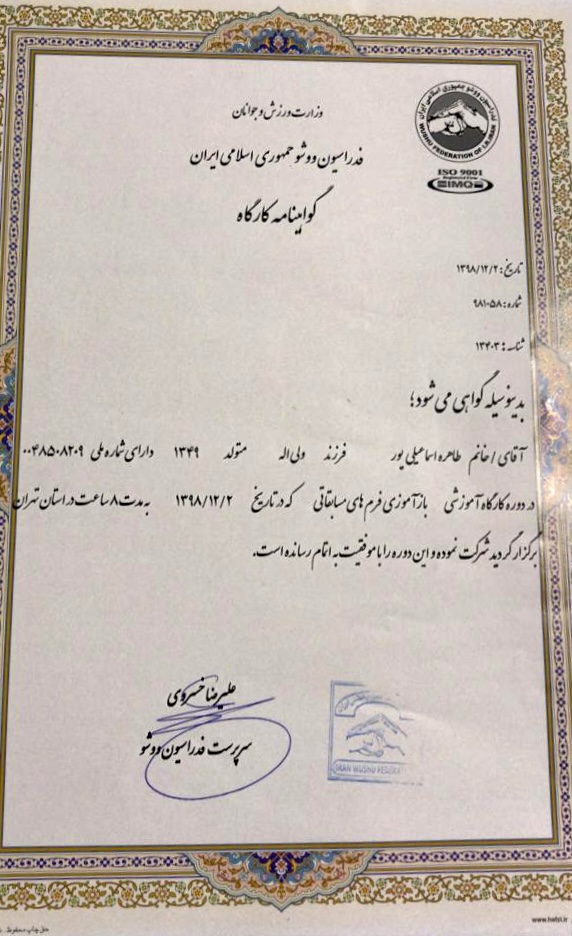 وزارت ورزش و جوانان
فدراسیون ووشو جمهوری اسلامی ایران
گواهینامه کارگاه
فدراسیون ووشو جمهوری اسلامی ایران
WUSHU FEDERATION OF I.R.IRAN
ISO 9001
IMQ
تاریخ: ۱۳۹۸/۱۲/۲
شماره: ۹۸۱۰۵۸
شناسه: ۱۳۴۰۳
بدینوسیله گواهی می شود؛
آقای / خانم طاهره اسماعیلی پور فرزند ولی اله متولد ۱۳۴۹ دارای شماره ملی ۰۰۴۸۵۰۸۲۰۹
در دوره کارگاه آموزشی بازآموزی فرم های مسابقاتی که در تاریخ ۱۳۹۸/۱۲/۲ به مدت ۸ ساعت در استان تهران
برگزار گردید شرکت نموده و این دوره را با موفقیت به اتمام رسانده است.
علیرضا خسروی
سرپرست فدراسیون ووشو
IRAN WUSHU
حق چاپ محفوظ